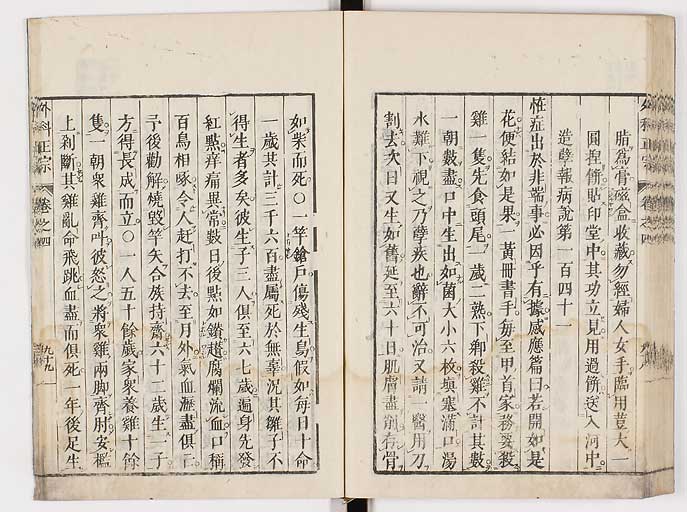 脂爲膏磁盒收藏勿經婦人女手臨用荳大一
圓捏餅貼印堂中其功立見用過餅送入河中
造孽報病說第一百四十一
恠症出於非端事必因乎有據感應篇曰若開如是
花便結如是果一黃冊書手每至甲首家務要殺
雞一隻先食頭尾一歲二熟下鄉殺雞不計其數
一朝數盡口中生出如菌大小六枚塡塞滿口湯
水難下視之乃孽疾也辭不可治又請一醫用刀
割去次日又生如舊延至六十日肌膚盡削存骨
外科正宗 卷之四
外科正宗 卷之四 九十九
如柴而死○一竿鎗戶傷殘生鳥假如每日十命
一歲共計三千六百盡屬死於無辜況其雛子不
得生者多矣彼生子三人俱至六七歲遍身先發
紅點痒痛異常數日後點如鑽
腐爛流血口稱
百鳥相啄令人赶打不去至月外氣血瀝盡俱亡
予後勸解燒毀竿矢合族持齋六十二歲生一子
方得長成而立○一人五十餘歲家衆養雞十餘
隻一朝衆雞齊叫彼怒之將衆雞兩脚齊肘安檻
上剁斷其雞亂命飛跳血盡而俱死一年後足生